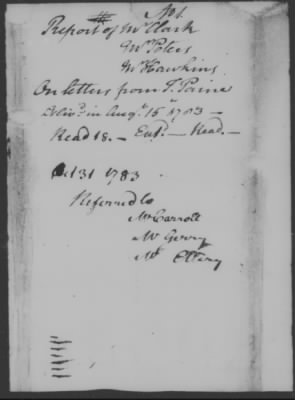 No 1
Report of Mr Clark
Mr Peters
Mr Hawkins
On letters from T. Paine
Deliv.d in Aug.t 15th 1783 —
Read 18. — Ent.d — Read. —
Oct 31 1783
Referred to
Mr Carroll
Mr Gerry
Mr Ellery